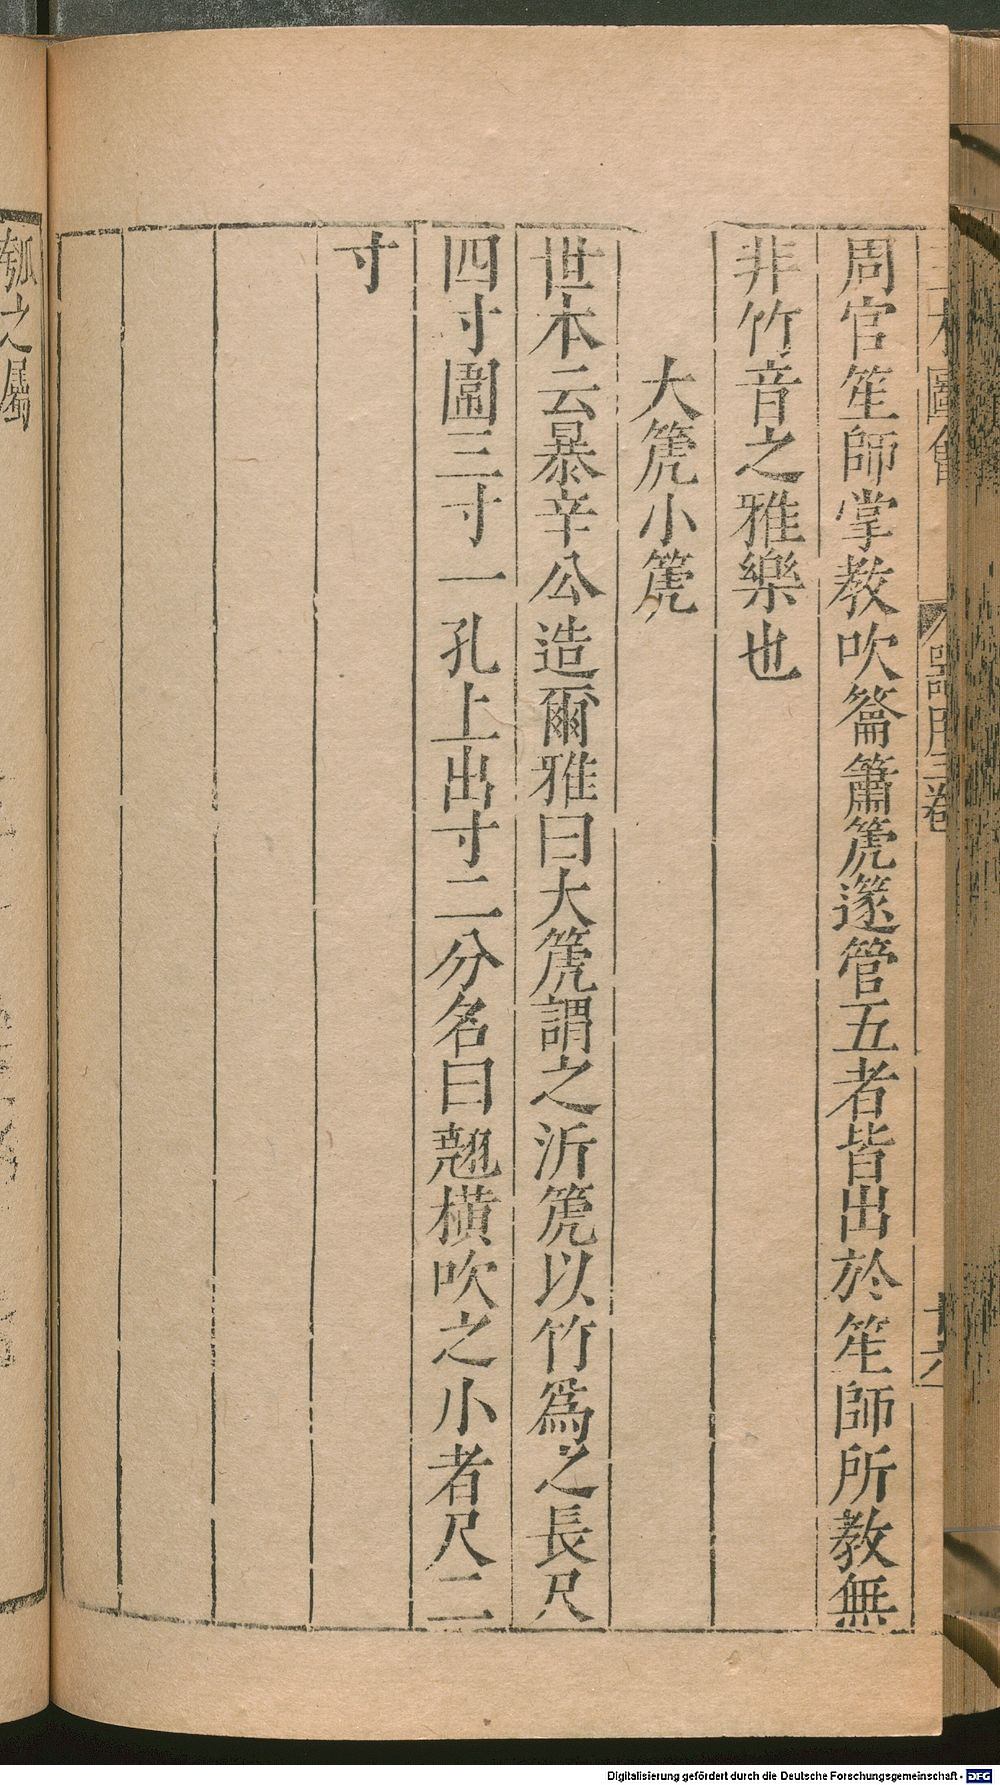 三才圖會 器用三卷
周官笙師掌教吹籥簫篪篴管五者皆出於笙師所教無
非竹音之雅樂也
大篪小篪
世本云暴辛公造爾雅曰大篪謂之沂篪以竹爲之長尺
四寸圍三寸一孔上出寸二分名曰翹橫吹之小者尺二
寸
瓠之屬
Digitalisierung gefördert durch die Deutsche Forschungsgemeinschaft - DFG